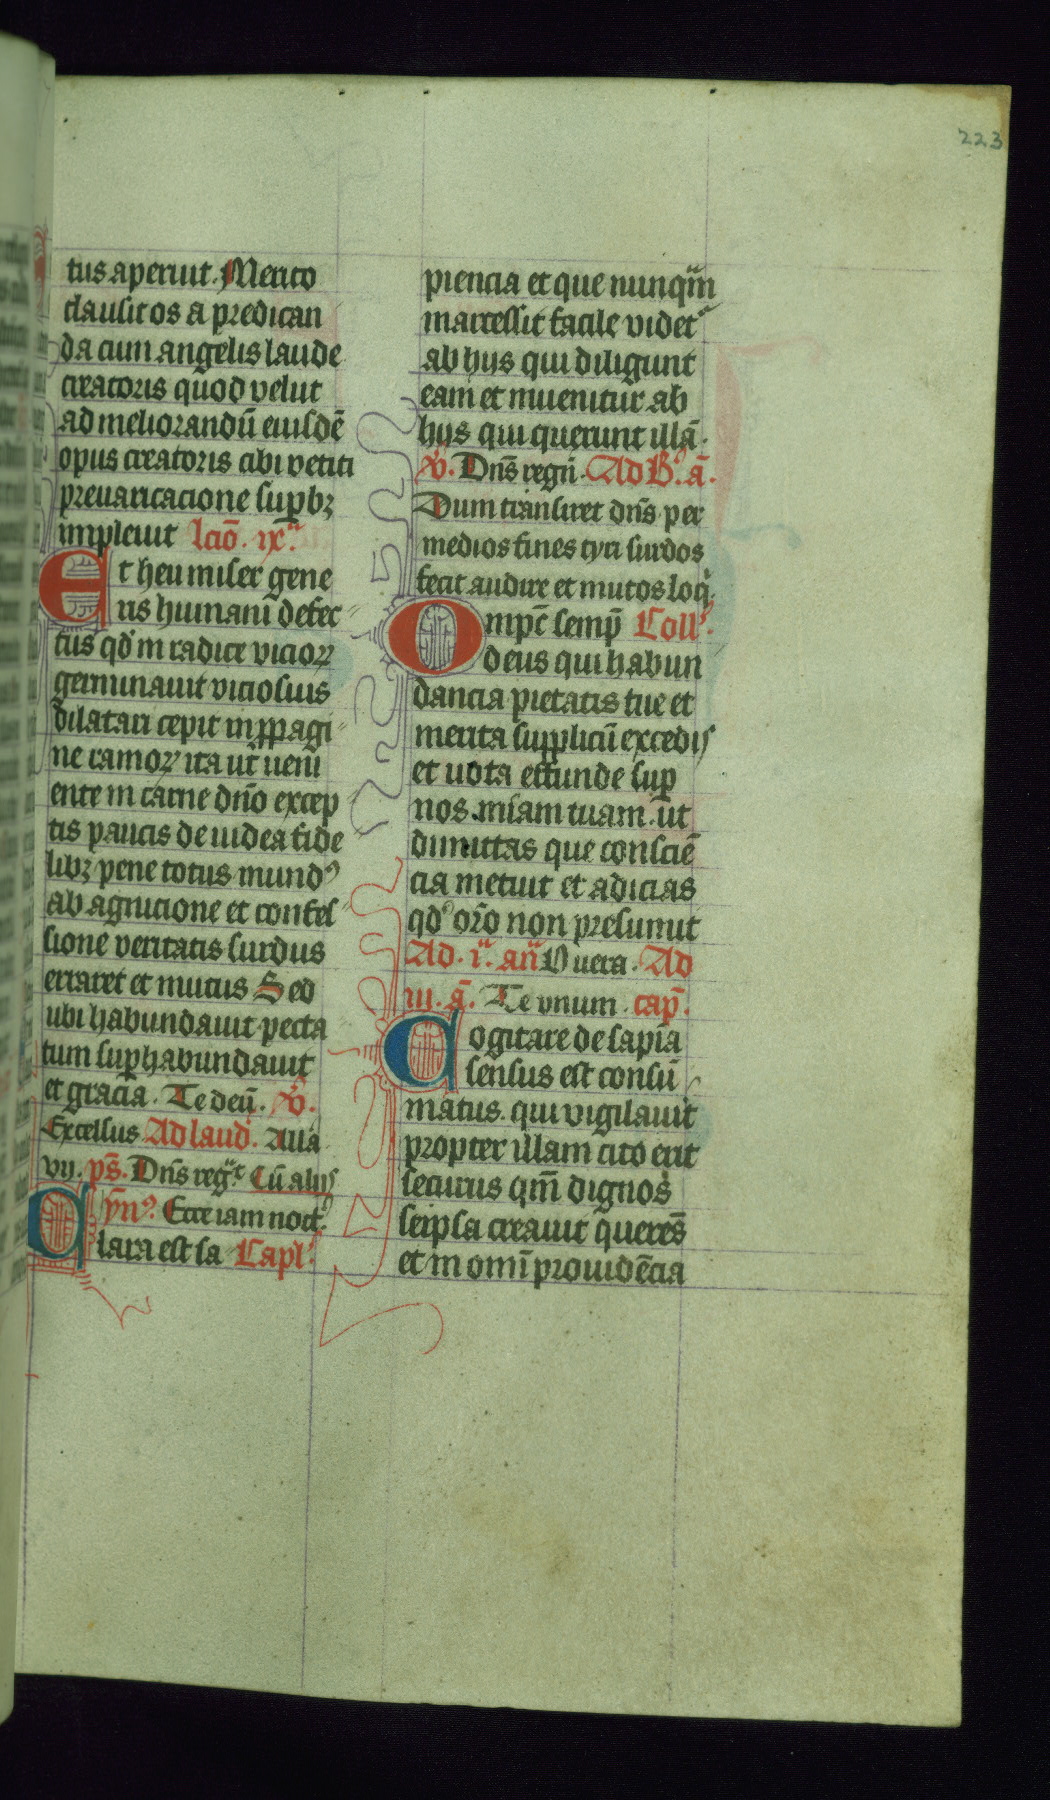 223
tus aperuit. Merito
clausit os a predican
da cum angelis laude
creatoris quod velut
ad meliorandū eiusdē
opus creatoris cibi vetiti
prevaricacione supbꝫ
impleuit lc̄o. ix.ᵃ
Et heu miser gene
ris humani defec
tus qd̕ in radice vicioꝝ
germinauit viciosius
dilatari cepit in ꝓpagi
ne ramoꝝ ita ut ueni
ente in carne dn̄o excep
tis paucis de iudea fide
libꝫ pene totus mundꝰ
ab agnicione et confes
sione veritatis surdus
erraret et mutus Sed
ubi habundauit pecca
tum sup̱habundauit
et gracia. Te deū. v̕.
Excelsus Ad laud̕. Alia
vij. ps̄. Dn̄s reg.ᵗ Cū alijs
ynꝰ. Ecce iam noct̕.
Clara est sa Capl̕.
piencia et que nunqᵃm
marcessit facile videt̕
ab hijs qui diligunt
eam et inuenitur ab
hijs qui querunt illā.
v̕. Dn̄s regn̄. Ad B.ᵒ ā.
Dum transiret dn̄s per
medios fines tyri surdos
fecit audire et mutos loqⁱ.
Omp̄c semp̄ Coll̕.
deus qui habun
dancia pietatis tue et
merita supplicū excedis
et uota effunde sup̱
nos. mīam tuam. ut
dimittas que conscīē
cia metuit et adicias
qd̕ orō non presumit
Ad. i.ᵃ an̄ Vuera. Ad
iii. ā. Te vnum. cap̄.
Cogitare de sapīa
sensus est consū
matus. qui vigilauit
propter illam cito erit
securus qm̄ dignos
seipsa creauit querēs
et in omī prouidēcia